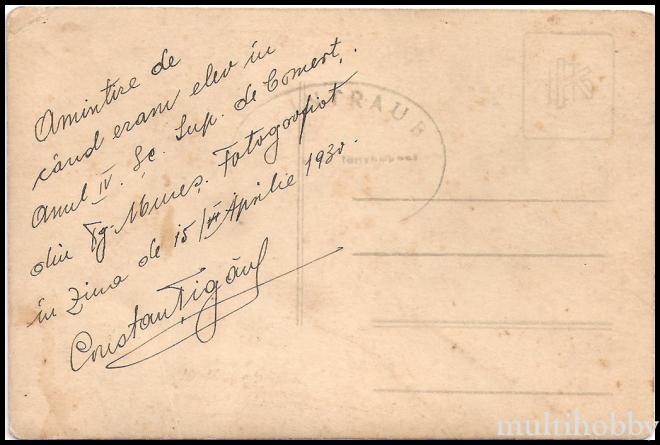 Amintire de
când eram elev în
Anul IV. Șc. Sup. de Comerț,
din Tg Mureș. Fotografiat
în Ziua de 15/IV Aprilie 1930.
Constan Țigănl
TRAUB
multihobby